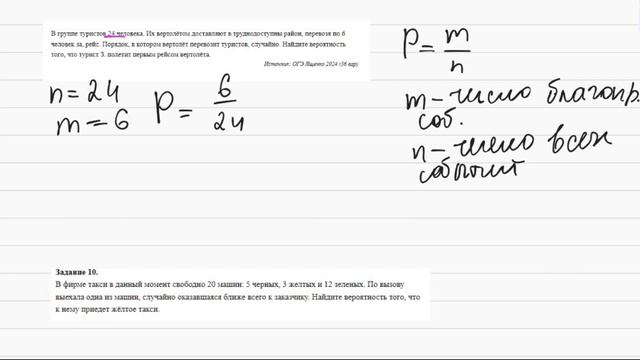 В группе туристов 24 человека. Их вертолётом доставляют в труднодоступный район, перевозя по 6
человек за рейс. Порядок, в котором вертолёт перевозит туристов, случайно. Найдите вероятность
того, что турист З. полетит первым рейсом вертолёта.
Источник: ОГЭ Ященко 2024 (36 вар)
n = 24
m = 6
P = 6/24
P = m/n
m - число благопр.
соб.
n - число всех
событий
Задание 10.
В фирме такси в данный момент свободно 20 машин: 5 черных, 3 желтых и 12 зеленых. По вызову
выехала одна из машин, случайно оказавшаяся ближе всего к заказчику. Найдите вероятность того, что
к нему приедет жёлтое такси.